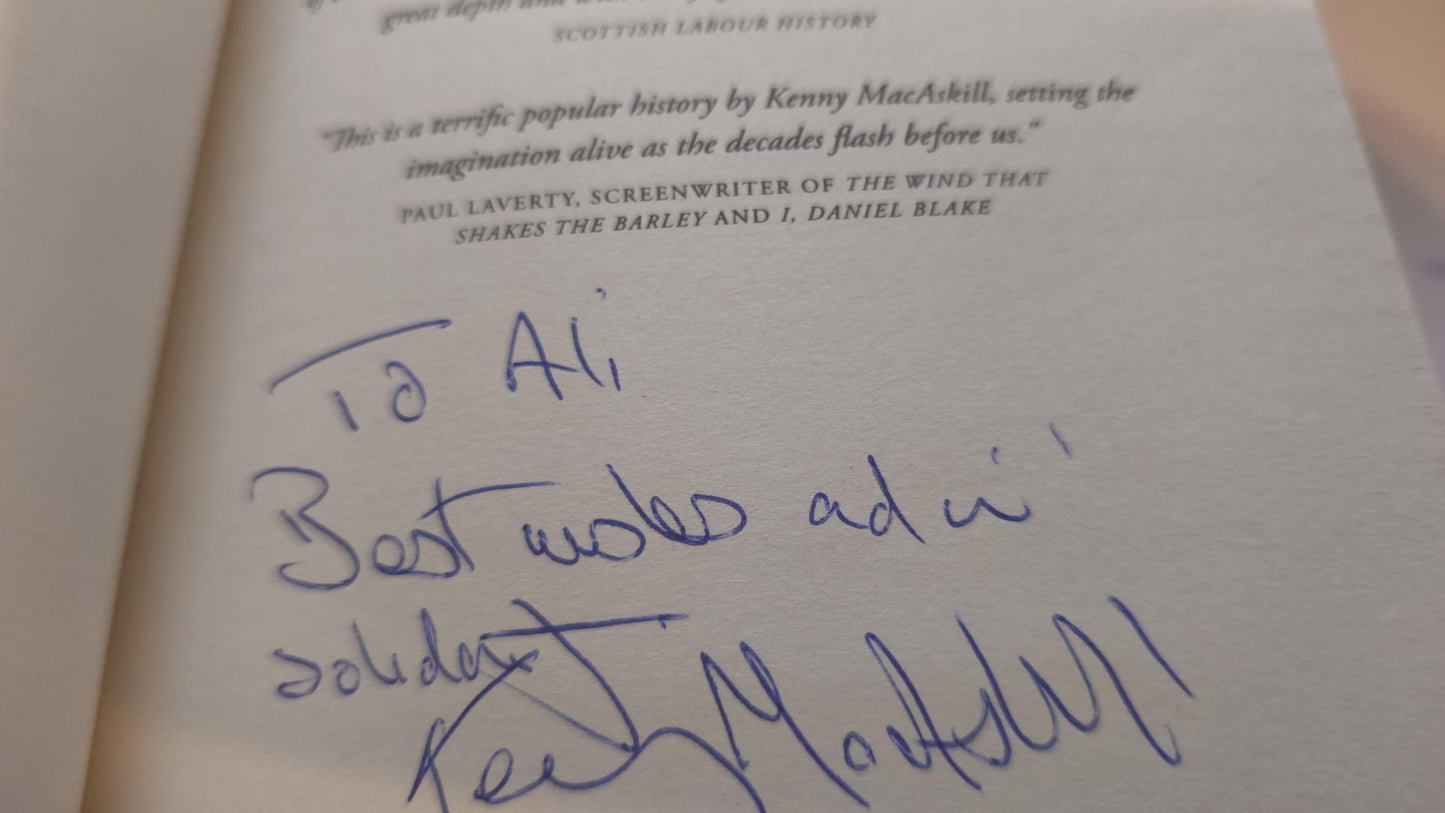 great depth and
SCOTTISH LABOUR HISTORY
"This is a terrific popular history by Kenny MacAskill, setting the
imagination alive as the decades flash before us."
PAUL LAVERTY, SCREENWRITER OF THE WIND THAT
SHAKES THE BARLEY AND I, DANIEL BLAKE
To Ali
Best wishes and in
solidarity
Kenny MacAskill